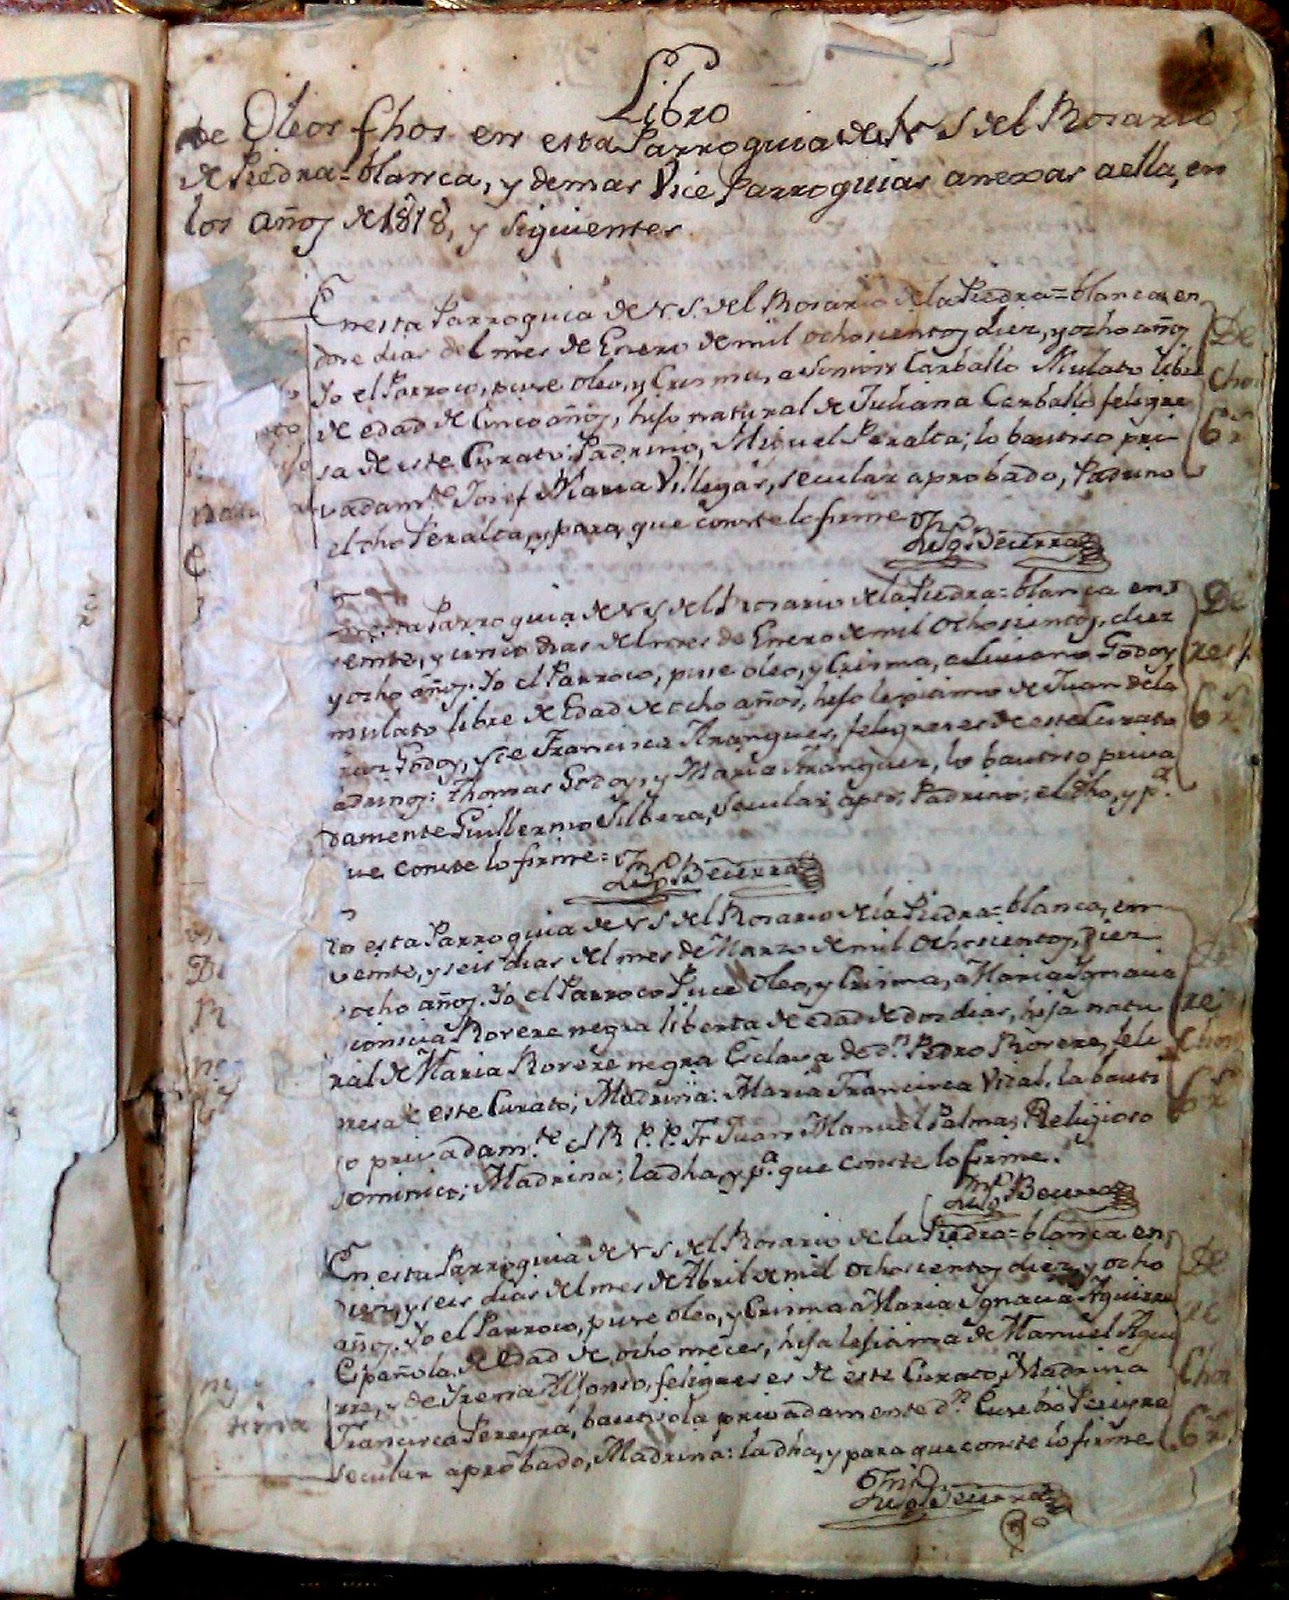 Libro
de Oleos fhos en esta Parroquia de N S del Rosario
de Piedra=blanca, y demas Vice Parroquias anexas aella, en
los años de 1818, y siguientes
En esta Parroquia de N. S. del Rosario de la Piedra=blanca en
dose dias del mes de Enero de mil ochosientos diez, y ocho años
Yo el Parroco, puse oleo, y Crisma, a Carballo Mulato libre
de edad de Cinco años, hijo natural de Juliana Carballo feligre
sa de este Curato: Padrino, Miguel Peralta; lo bautiso pri
vadam.te Josef Maria Villegas, secular aprobado, Padrino
el dho Peralta, y para que conste lo firme
Becerra
esta Parroquia de N S del Rosario de la Piedra=blanca en
veinte, y cinco dias del mes de Enero de mil ochosientos, diez
y ocho años. Yo el Parroco, puse oleo, y Crisma, a Luciano Godoy
mulato libre de Edad de ocho años, hijo lejitimo de Juan de la
Godoy, y de Francisca Arangues, feligreses de este Curato
adrinos: Thomas Godoy, y Maria Arangues, lo bautiso priva
damente Guillermo Silbera, Secular apro; Padrino; el dho, y p.a
ue conste lo firme=
Becerra
en esta Parroquia de N S del Rosario de la Piedra=blanca, en
veinte, y seis dias del mes de Marzo de mil ochosientos, Diez
ocho años. Yo el Parroco Puse Oleo, y Crisma, a Maria Ygnacia
Rovere negra liberta de edad de dos dias, hija natu
ral de Maria Rovere negra Esclava de d.n Pedro Rovere, feli
resa de este Curato; Madrina: Maria Francisca Vidal, la bauti
so privadam.te el R. P. P. Fr Juan Manuel Palma, Religioso
ominico; Madrina; la dha, y p.a que conste lo firme.
Becerra
En esta Parroquia de N S del Rosario de la Piedra=blanca en
diez, y seis dias del mes de Abril de mil ochosientos diez y ocho
años. Yo el Parroco, puse oleo, y Crisma a Maria Ygnacia Aguirre
Española, de edad de ocho meses, hija lejitima de Manuel Agui
rre, y de Yrenia Alfonso, feligreses de este Curato, Madrina
Francisca Pereyra, bautisola privadamente d.n Eusebio Pereyra
secular aprobado, Madrina: la dha, y para que conste lo firme
Becerra